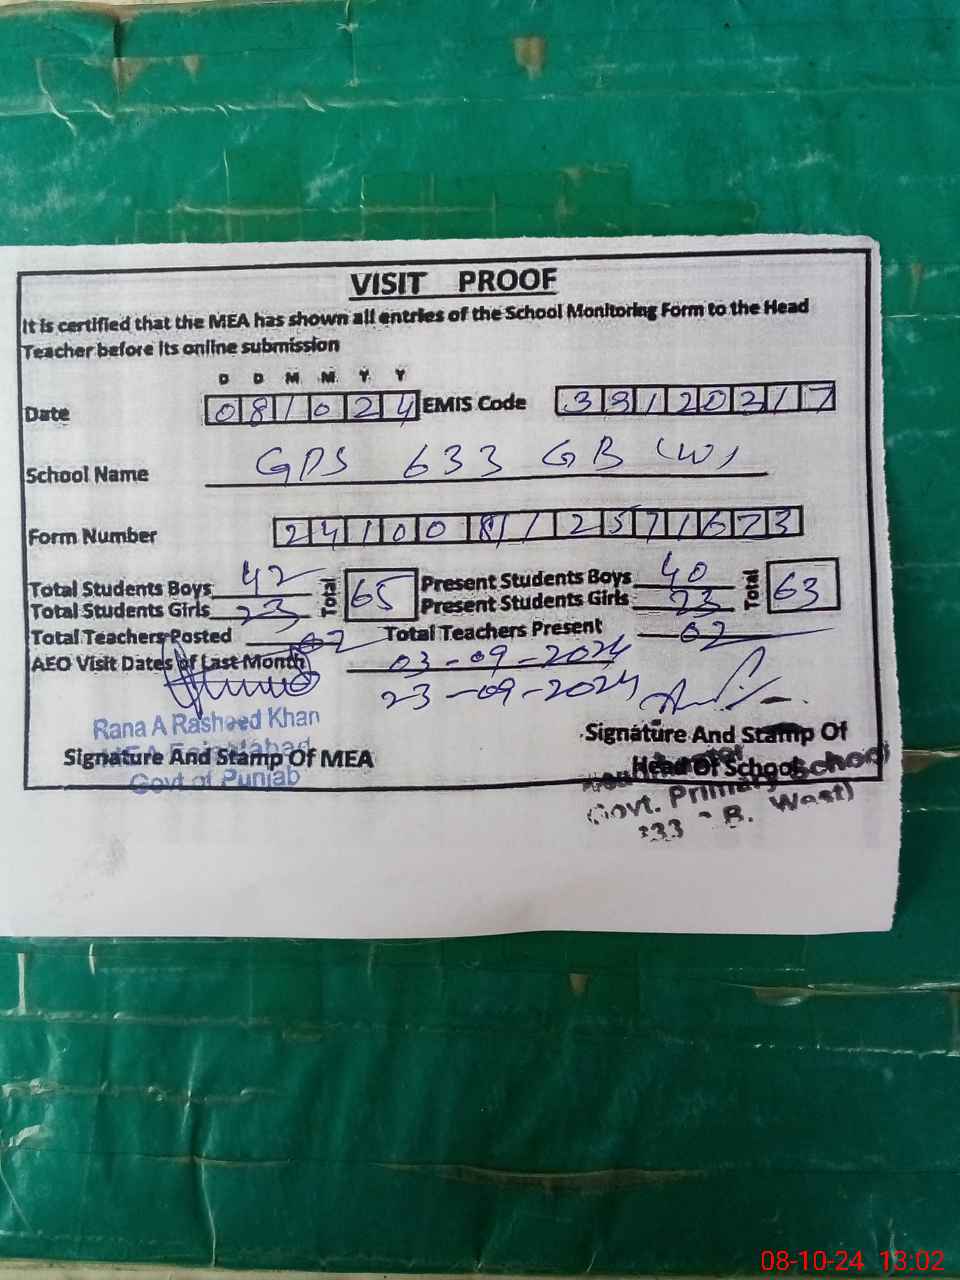 VISIT PROOF
It is certified that the MEA has shown all entries of the School Monitoring Form to the Head
Teacher before its online submission
D D M M Y Y
Date 081024 EMIS Code 33120217
School Name GPS 633 GB (W)
Form Number 24100811257 1673
Total Students Boys 42 Total 65 Present Students Boys 40 Total 63
Total Students Girls 23 Present Students Girls 23
Total Teachers Posted 02 Total Teachers Present 02
AEO Visit Dates of Last Month 03-09-2024
23-09-2024
Rana A Rasheed Khan
MEA Faisalabad
Govt of Punjab
Signature And Stamp Of MEA
Signature And Stamp Of
Head Of School
Govt. Primary School
B. West)
08-10-24 13:02